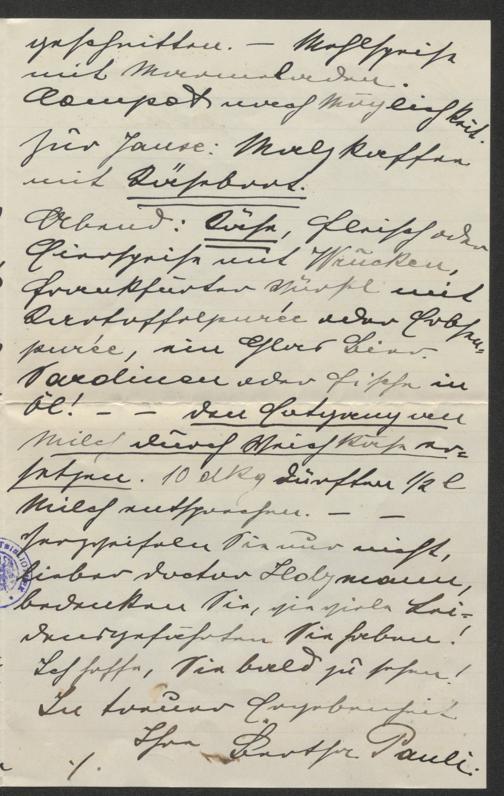 geschnitten. — Mehlspeise
mit Marmeladen.
Compot nach Möglichkeit.
Für Jause: Malzkaffee
mit Käsebrot.
Abend: Käse, Fleisch oder
Eierspeise mit Wrucken,
Frankfurter Würstl mit
Kartoffelpurée oder Erbsen-
purée, ein Glas Bier.
Sardinen oder Fische in
Öl! — — den Entgang von
Milch durch Weichkäse er-
setzen. 10 dkg dürften 1/2 l
Milch entsprechen. — —
Verzweifeln Sie nur nicht,
lieber Doctor Holzmann,
bedenken Sie, wie viele Lei-
densgefährten Sie haben!
Ich hoffe, Sie bald zu sehen!
In treuer Ergebenheit
Ihre Bertha Pauli.
./.